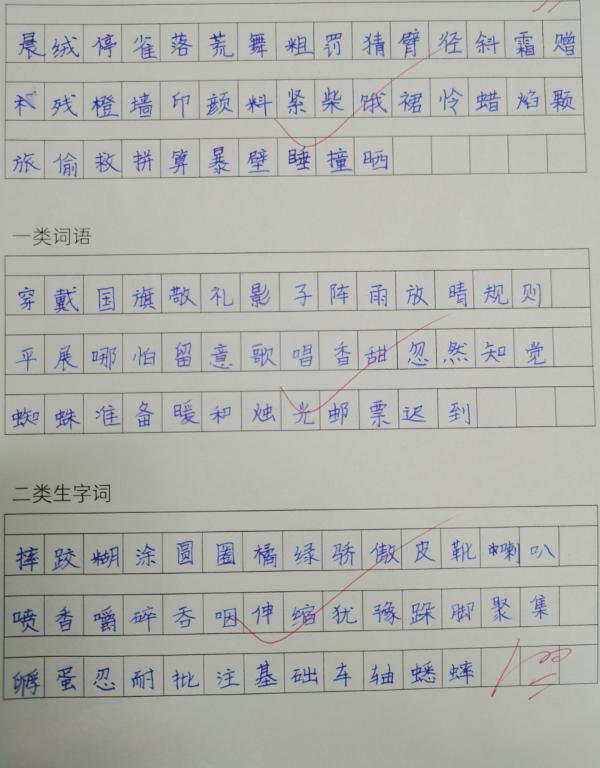 晨绒停雀落荒舞粗罚猜臂径斜霜赠
残橙墙印颜料紧柴饿裙怜蜡焰颗
旅偷救拼算暴壁睡撞晒
一类词语
穿戴国旗敬礼影子阵雨放晴规则
平展哪怕留意歌唱香甜忽然知觉
蜘蛛准备暖和烛光邮票迟到
二类生字词
摔跤糊涂圆圈橘绿骄傲皮靴喇叭
喷香嚼碎吞咽伸缩犹豫跺脚聚集
孵蛋忍耐批注基础车轴蟋蟀
100